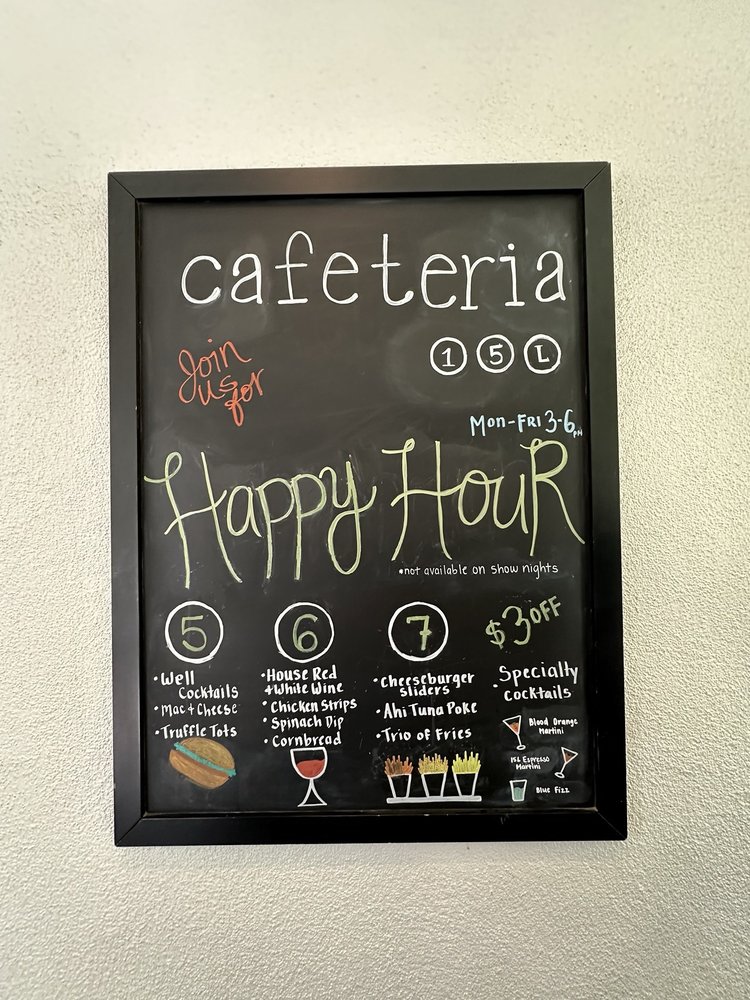 cafeteria
1 5 L
Join
us for
Mon-Fri 3-6 PM
Happy Hour
•not available on show nights
5
•Well
Cocktails
•Mac + Cheese
•Truffle Tots
6
•House Red
+White Wine
•Chicken Strips
•Spinach Dip
•Cornbread
7
•Cheeseburger
Sliders
•Ahi Tuna Poke
•Trio of Fries
$3 OFF
•Specialty
Cocktails
Blood Orange
Martini
15L Espresso
Martini
Blue Fizz